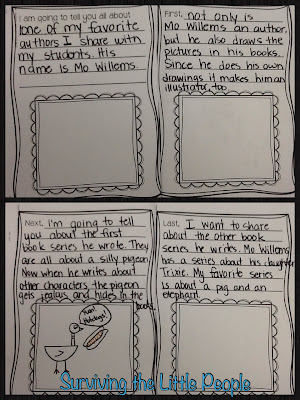 I am going to tell you all about
one of my favorite
authors I share with
my students. His
name is Mo Willems.
First, not only is
Mo Willems an author,
but he also draws the
pictures in his books.
Since he does his own
drawings it makes him an
illustrator, too.
Next, I'm going to tell
you about the first
book series he wrote. They
are all about a silly pigeon.
Now when he writes about
other characters the pigeon
gets jealous and hides in the
book.
Last, I want to share
about the other book
series he writes. Mo Willems
has a series about his daughter
Trixie. My favorite series
is about a pig and an
elephant!
Surviving the Little People